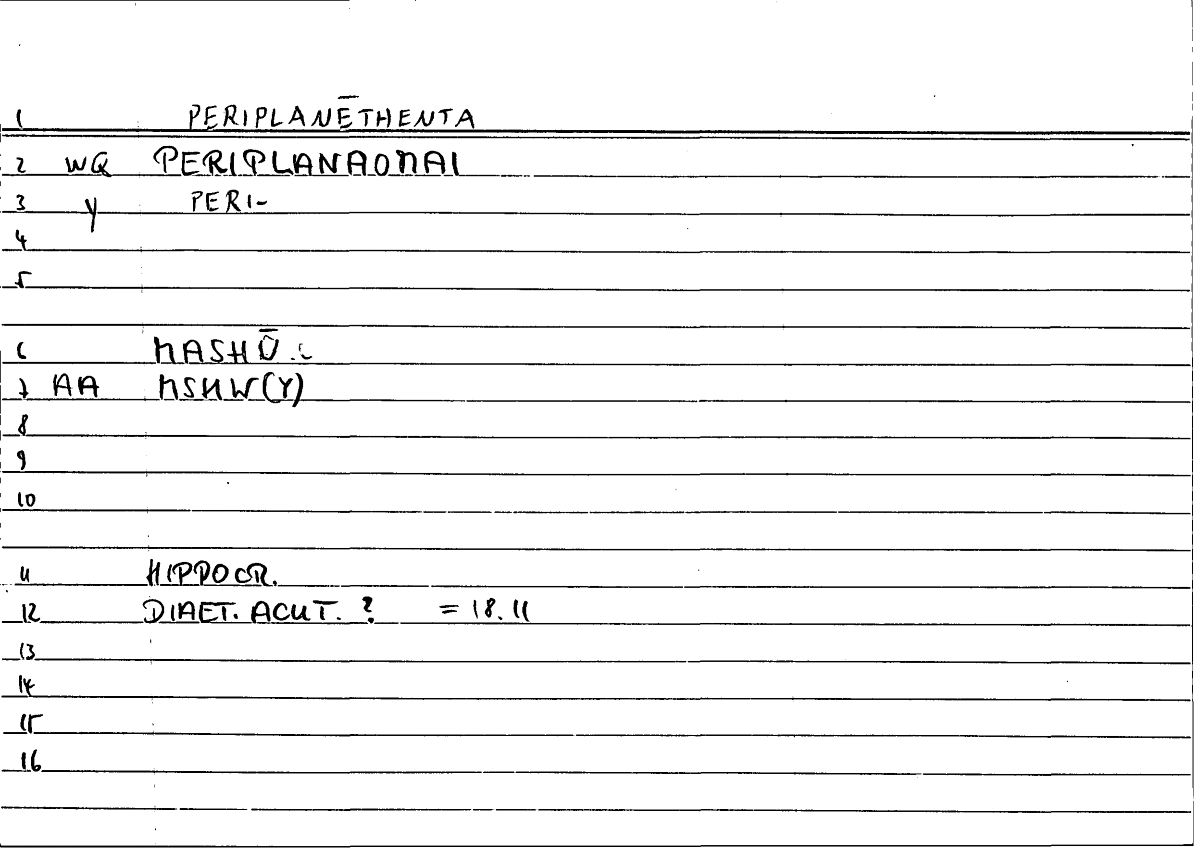 1 PERIPLANĒTHENTA
2 WQ PERIPLANAOMAI
3 Y PERI-
4
5
6 MASHŪ..
7 AA MSHW(Y)
8
9
10
11 HIPPOCR.
12 DIAET. ACUT. ? = 18.11
13
14
15
16